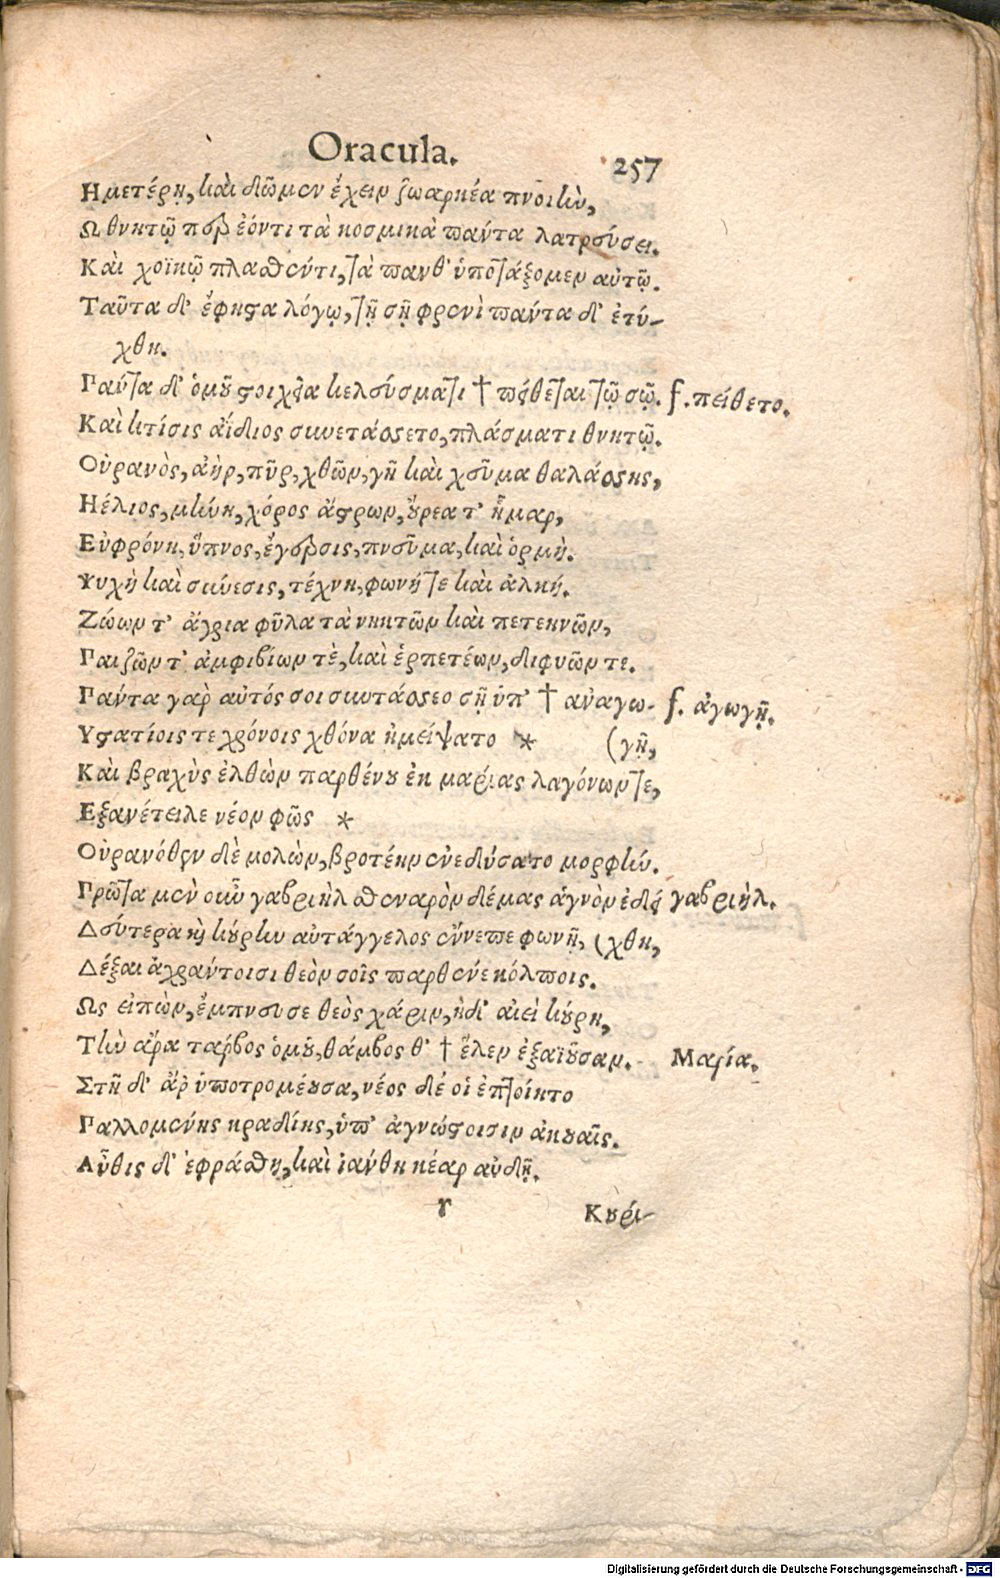 Oracula. 257
Ημετέρῃ, καὶ δῶμεν ἔχειν ζωαρκέα πνοιὴν,
Ω θνητῷ περ ἐόντι τὰ κοσμικὰ πάντα λατρεύσει.
Καὶ χοϊκῷ πλασθέντι, τὰ πανθ' ὑποτάξομεν αὐτῷ.
Ταῦτα δ' ἔφησα λόγῳ, τῇ σῇ φρενὶ πάντα δ' ἐτύ-
χθη.
Γαῦτα δ' ὁμοῦ στοιχεῖα κελεύσματι † πείθεται τῷ σῷ. f. πείθετο.
Καὶ κτίσις ἀΐδιος συνετάσσετο, πλάσματι θνητῷ.
Οὐρανὸς, ἀὴρ, πῦρ, χθὼν, γῆ καὶ χεῦμα θαλάσσης,
Ηέλιος, μήνη, χόρος ἄστρων, οὔρεα τ' ἦμαρ,
Εὐφρόνη, ὕπνος, ἔγερσις, πνεῦμα, καὶ ὁρμὴ.
Ψυχὴ καὶ σύνεσις, τέχνη, φωνή τε καὶ ἀλκή.
Ζώων τ' ἄγρια φῦλα τὰ νηκτῶν καὶ πετεηνῶν,
Γαιζῶν τ' ἀμφιβίων τὲ, καὶ ἑρπετέων, διφυῶν τε.
Γάντα γὰρ αὐτός σοι συντάσσεο σῇ ὑπ' † ἀναγω- f. ἀγωγῇ.
Υστατίοις τε χρόνοις χθόνα ἠμείψατο * (γῇ,
Καὶ βραχὺς ἐλθὼν παρθένου ἐκ μαρίας λαγόνων τε,
Εξανέτειλε νέον φῶς *
Οὐρανόθεν δὲ μολὼν, βροτέην ἐνεδύσατο μορφὴν.
Γρῶτα μὲν οὖν γαβριὴλ σθεναρὸν δέμας ἁγνὸν ἐδεί γαβριὴλ.
Δεύτερα καὶ κούρην αὐτάγγελος ἔννεπε φωνῇ, (χθη,
Δέξαι ἀχράντοισι θεὸν σοῖς παρθένε κόλποις.
Ως εἰπὼν, ἔμπνευσε θεὸς χάριν, ἡδ' αἰεὶ κούρη,
Τὴν ἄρα τάρβος ὁμοῦ, θάμβος θ' † ἕλεν ἐξαϊοῦσαν. Μαρία.
Στῆ δ' ἄρ ὑποτρομέουσα, νέος δέ οἱ ἐπτοίητο
Γαλλομένης κραδίης, ὑπ' ἀγνώστοισιν ἀκουαῖς.
Αὖθις δ' ἐφράσθη, καὶ ἰάνθη κέαρ αὐδῇ.
r Κουρί-
Digitalisierung gefördert durch die Deutsche Forschungsgemeinschaft - DFG